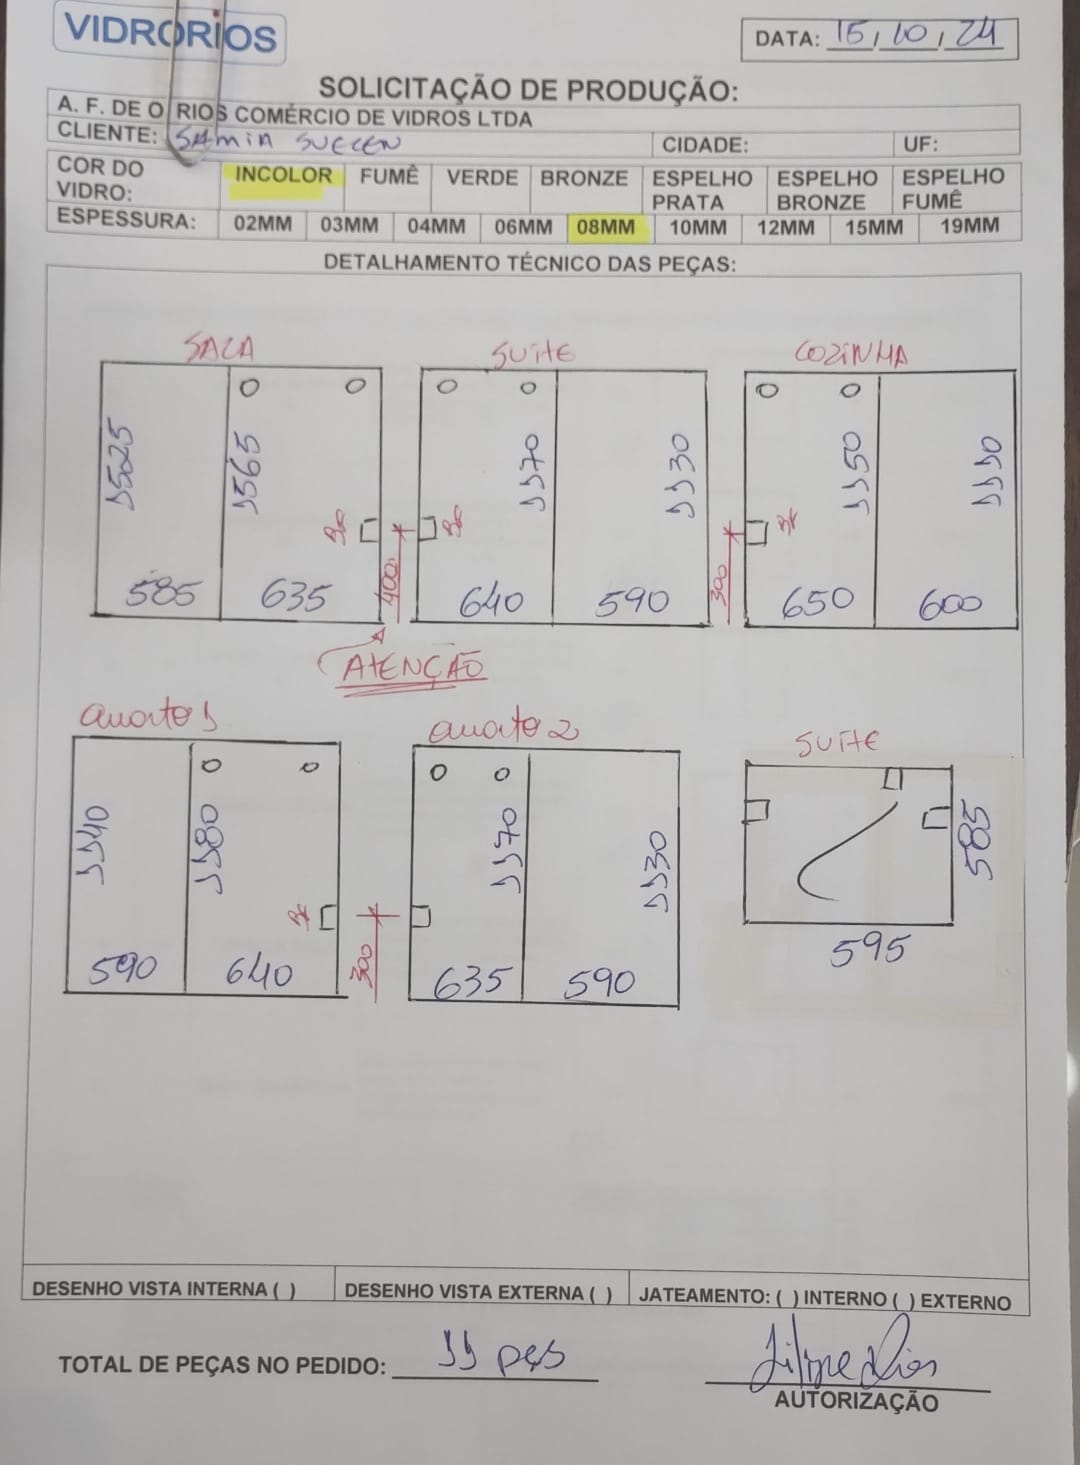 VIDRORIOS
DATA: 15, 10, 24
SOLICITAÇÃO DE PRODUÇÃO:
A. F. DE O RIOS COMÉRCIO DE VIDROS LTDA
CLIENTE: SAMIA SUELEN CIDADE: UF:
COR DO VIDRO: INCOLOR FUMÊ VERDE BRONZE ESPELHO PRATA ESPELHO BRONZE ESPELHO FUMÊ
ESPESSURA: 02MM 03MM 04MM 06MM 08MM 10MM 12MM 15MM 19MM
DETALHAMENTO TÉCNICO DAS PEÇAS:
SALA SUITE COZINHA
1525 1565 1170 1130 1150 1110
400 300
585 635 640 590 650 600
ATENÇÃO
QUARTO 1 QUARTO 2 SUITE
1140 1180 1170 1130 585
300
590 640 635 590 595
DESENHO VISTA INTERNA ( ) DESENHO VISTA EXTERNA ( ) JATEAMENTO: ( ) INTERNO ( ) EXTERNO
TOTAL DE PEÇAS NO PEDIDO: 11 pçs
Filipe Rios
AUTORIZAÇÃO